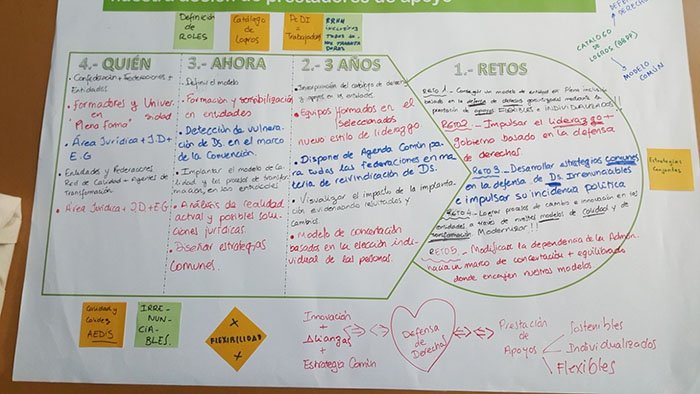 nuestra acción de prestadores de apoyo
Definición
de
ROLES
Catálogo
de
Logros
PcDI =
Trabajadores
RRHH
inclusivos
4.- QUIÉN
· Confederación + Federaciones +
Entidades
· Formadores y Univer-
sidad
en
"Pleno Fomo"
· Área Jurídica + J.D +
E.G
· Entidades y Federaciones
Red de Calidad + Agentes de
Transformación.
· Área Jurídica + J.D + E.G
3.- AHORA
· Definir el modelo
· Formación y sensibilización
en entidades
· Detección de vulnera-
ción de Ds. en el marco
de la Convención.
· Implantar el modelo de Ca-
lidad y los procesos de transfor-
mación, en las entidades
· Análisis de realidad
actual y posible solu-
ciones jurídicas.
Diseñar estrategias
comunes.
2.- 3 AÑOS
· Incorporación del catálogo de derechos
y apoyos en las entidades.
· Equipos formados en el
seleccionados
nuevo estilo de liderazgo
· Dispone de Agenda Común pa-
ra todas las federaciones en ma-
teria de reivindicación de Ds.
· Visualizar el impacto de la implanta-
ción evidenciando resultados y
cambios.
· Modelo de concertación
basados en la elección indi-
vidual de las personas.
1.- RETOS
RETO 1.- Conseguir un modelo de entidad en Plena inclusión
basado en la defensa de derechos mediante la
prestación de apoyos FLEXIBLES e INDIVIDUALIZADOS!!!
RETO 2.- Impulsar el liderazgo +
gobierno basado en la defensa
de derechos.
RETO 3.- Desarrollar estrategias comunes
en la defensa de Ds. Irrenunciables
e impulsar su incidencia política
RETO 4.- Lograr procesos de cambio e innovación en las
entidades a través de nuestros modelos de Calidad y de
Transformación Modernizar!!!
RETO 5.- Modificar la dependencia de la Admón.
hacia un marco de concertación + equilibrado
donde encajen nuestros modelos.
DEFENSA
DERECHOS
CATÁLOGO
DE
LOGROS (BBPP)
MODELO
COMÚN
Estrategias
Conjuntas
Calidad y
Calidez
AEDIS
IRRE-
NUN-
CIA-
BLES.
+
FLEXIBILIDAD
+
Innovación
+
Alianzas
+
Estrategia Común
Defensa
de
Derechos
Prestación
de
Apoyos
Sostenibles
Individualizados
Flexibles